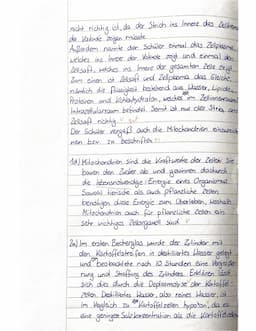 nicht richtig ist, da der Strich ins Innere das Zellinnere
der Vakuole zeigen müsste.
Außerdem nannte der Schüler einmal das Zellplasma,
welches ins Innere der Vakuole zeigt und einmal den
Zellsaft, welches ins Innere der gesamten Zelle zeigt.
Zum einen ist Zellsaft und Zellplasma das Gleiche,
nämlich die Flüssigkeit bestehend aus Wasser, Lipide,
Proteinen und Kohlenhydraten, welches im Zellinnenraum
Intrazellularraum befindet. Somit ist nur eher Strich
Zellsaft richtig.
Der Schüler vergaß auch die Mitochondrien einzuzeich-
nen bzw. zu beschriften.
1d) Mitochondrien sind die Kraftwerke der Zellen. Sie
bauen den Zucker ab und gewinnen dadurch
die lebensnotwendige Energie eines Organismus.
Sowohl tierische als auch pflanzliche Zellen
benötigen diese Energie zum Überleben, weshalb
Mitochondrien auch für pflanzliche Zellen ein
sehr wichtiges Zellorganell sind.
2a) Im ersten Becherglas wurde der Zylinder mit
den Kartoffelstreifen in destilliertes Wasser gelegt
und beobachtete nach 12 Stunden eine Vergröße-
rung und Straffung des Zylinders. Erklären lässt
sich dies durch die Deplasmolyse der Kartoffel-
zellen. Destilliertes Wasser, also reines Wasser, ist
im Vergleich zu Kartoffelzellen hypoton, da es
eine geringere Salzkonzentration als die Kartoffelzellen